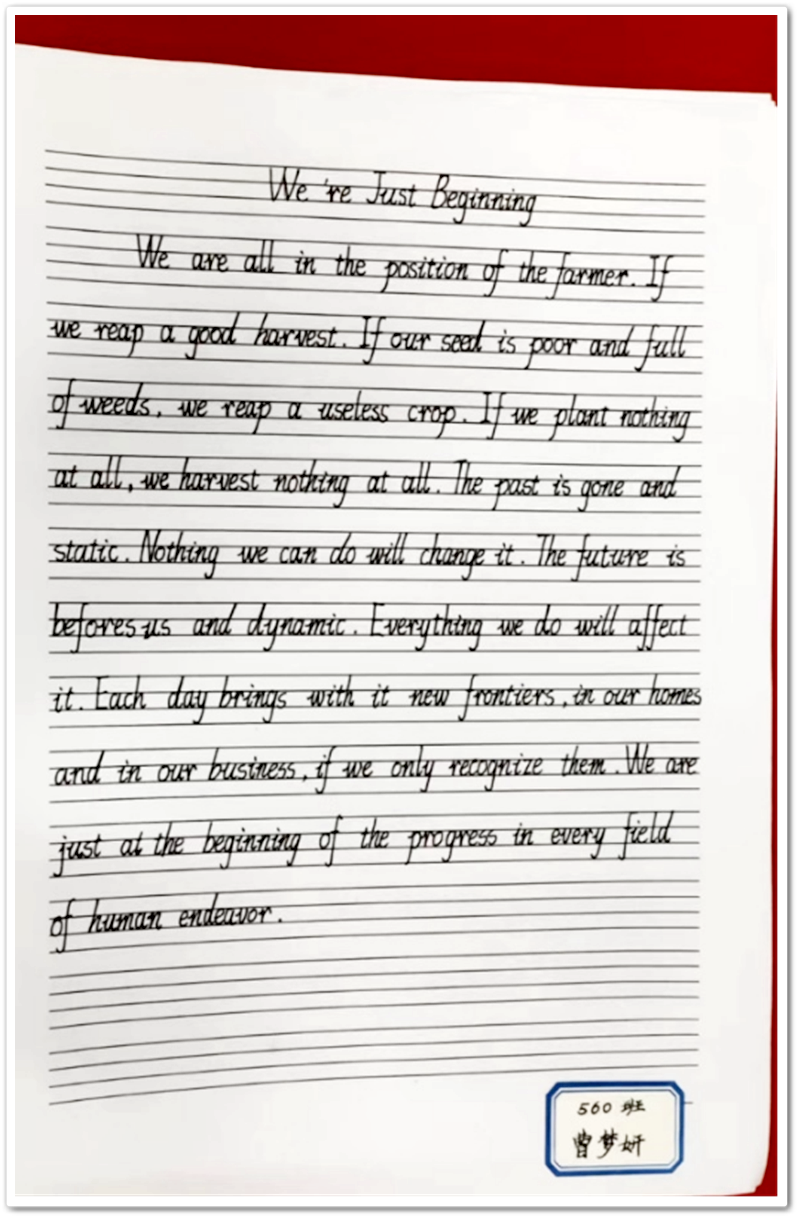 We 're Just Beginning
We are all in the position of the farmer. If
we reap a good harvest. If our seed is poor and full
of weeds, we reap a useless crop. If we plant nothing
at all, we harvest nothing at all. The past is gone and
static. Nothing we can do will change it. The future is
befores us and dynamic. Everything we do will affect
it. Each day brings with it new frontiers, in our homes
and in our business, if we only recognize them. We are
just at the beginning of the progress in every field
of human endeavor.
560 班
曾梦妍